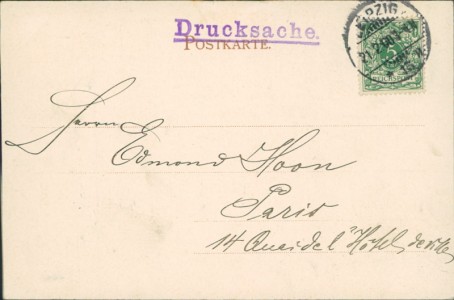 Drucksache.
POSTKARTE.
LEIPZIG
Herrn
Edmond Hoon
Paris
14 Quai de l'Hôtel de ville